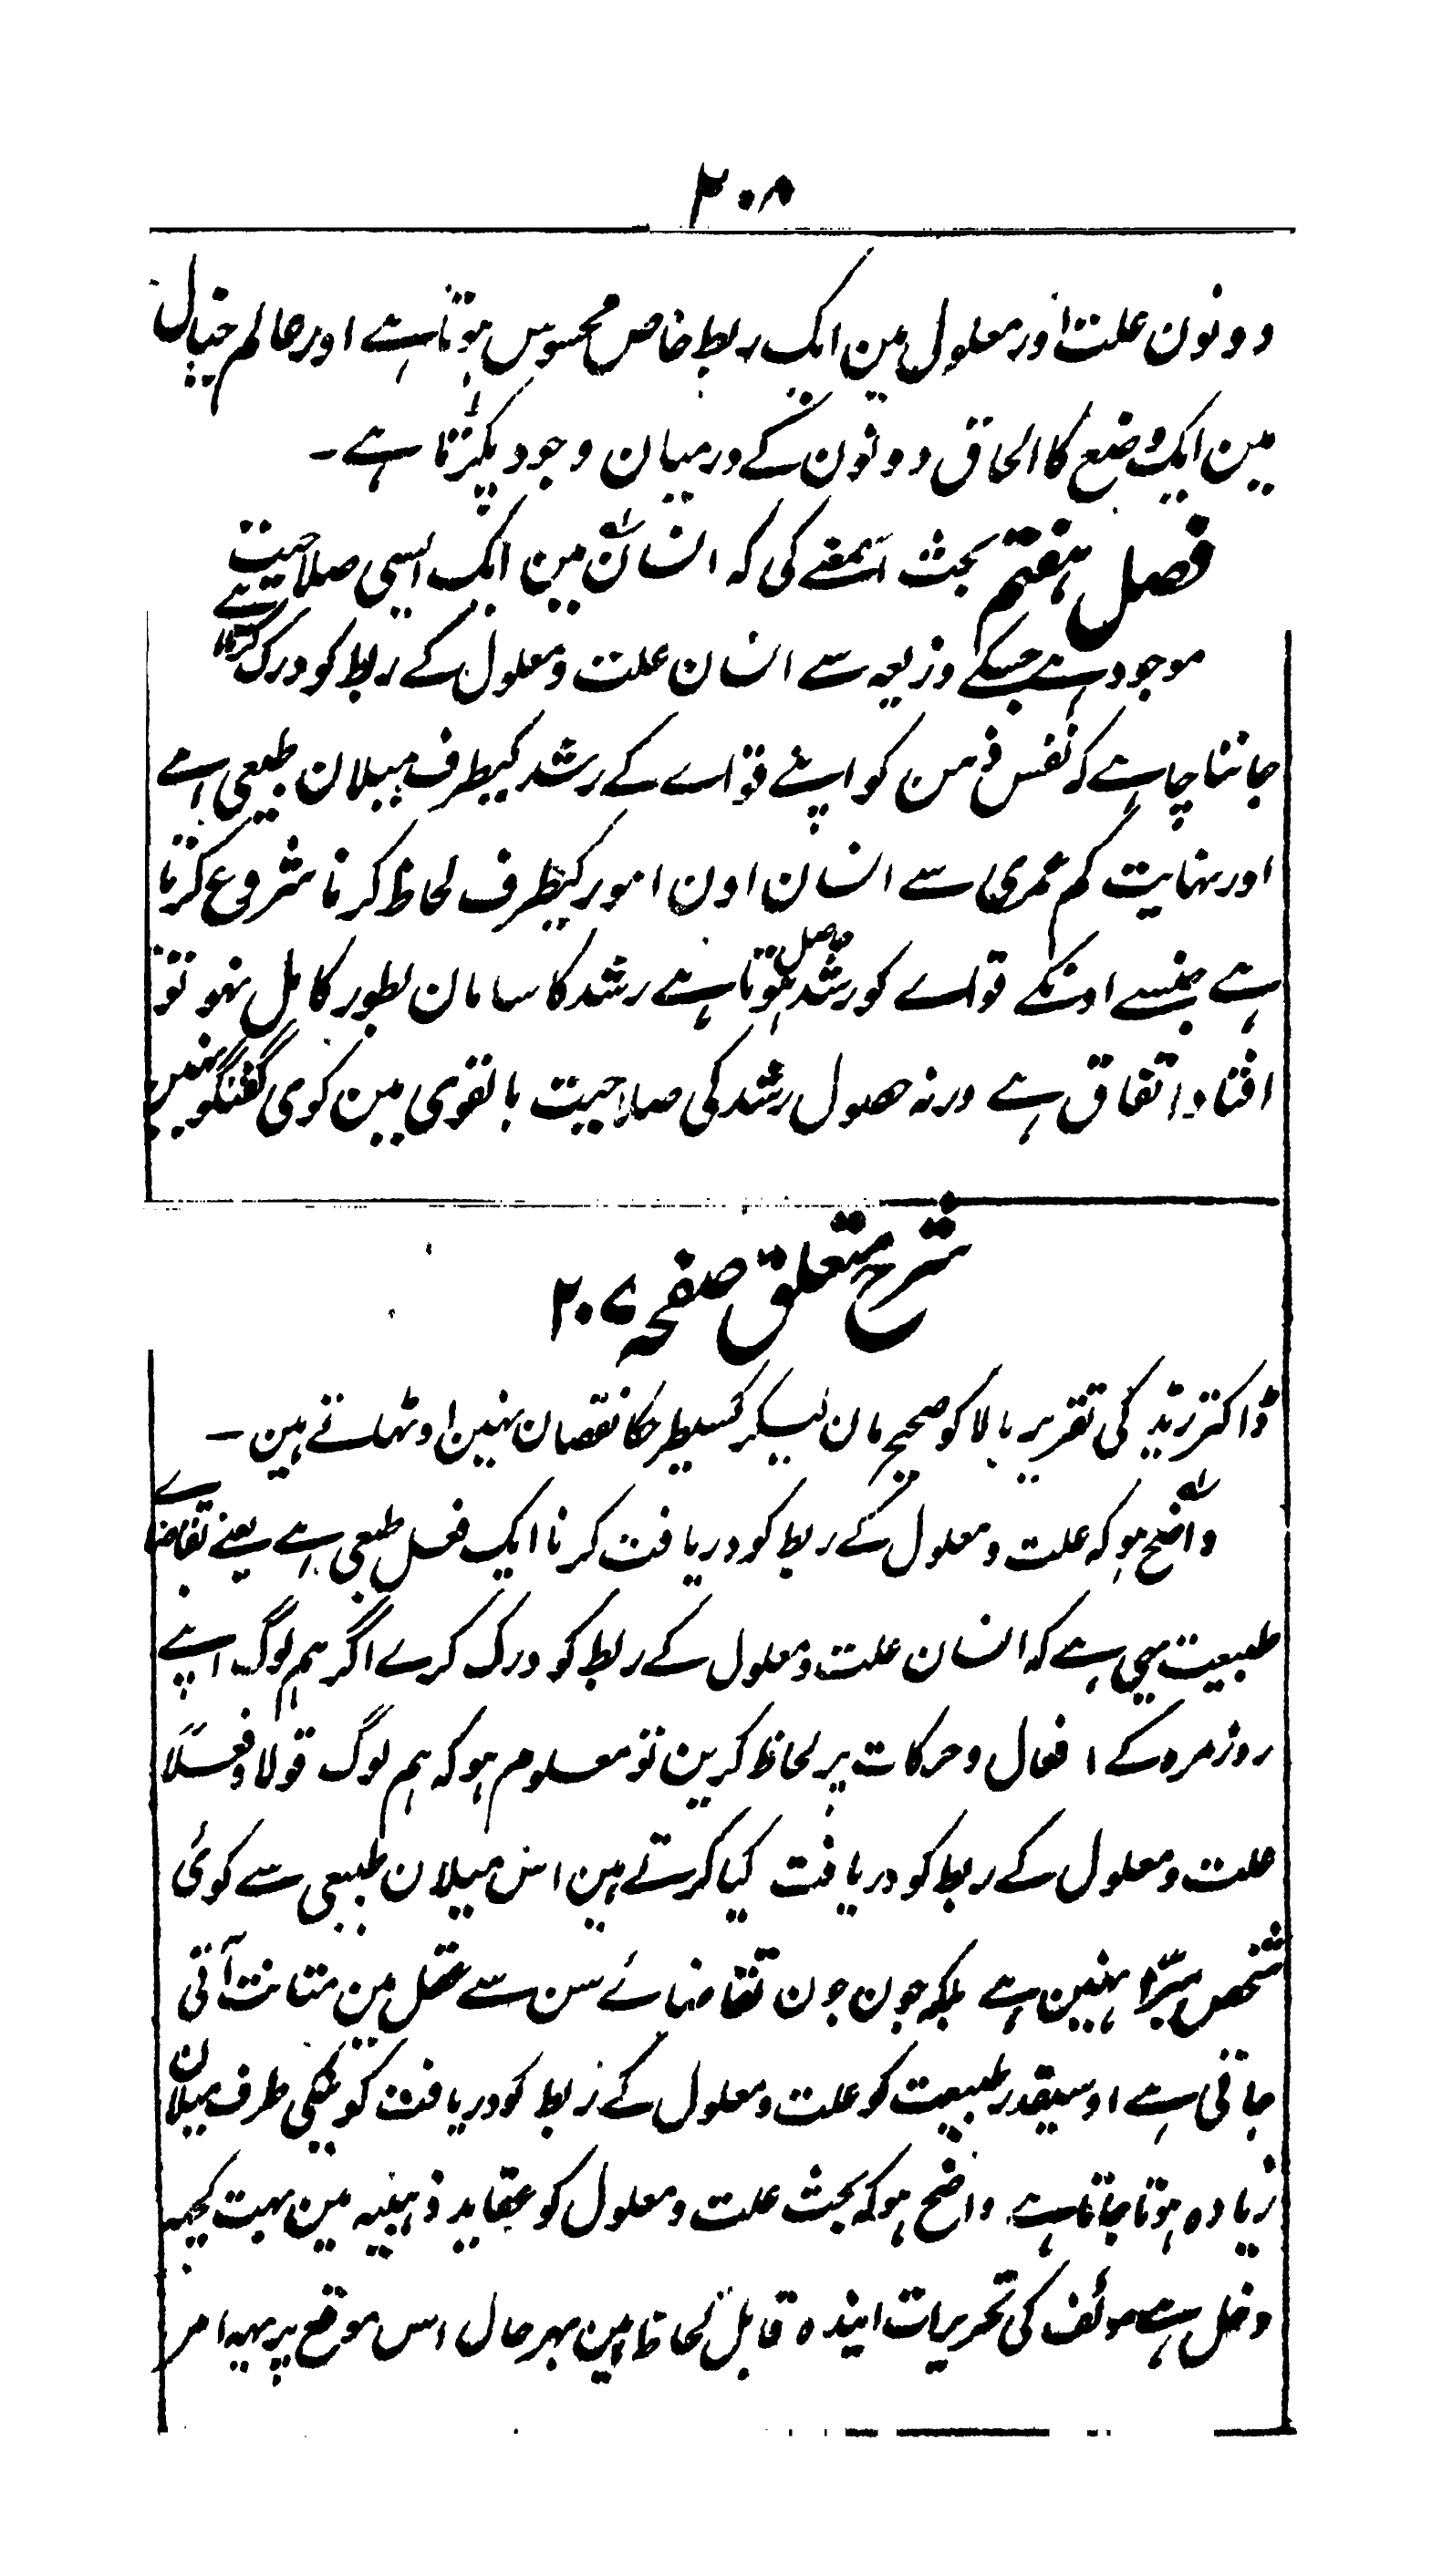 ۲۰۸
دونون علت اور معلول مین ایک ربط خاص محسوس ہوتا ہے اور عالم خیال
مین ایک وضع کا الحاق دونون کے درمیان وجود پکڑتا ہے۔
فصل ہفتم بحث اسمعنے کی کہ انسان مین ایک ایسی صلاحیت
موجود ہے جسکے ذریعہ سے انسان علت و معلول کے ربط کو درک کرتا ہے
جاننا چاہے کہ نفس ذہن کو اپنے قواے کے رشد کیطرف میلان طبیعی ہے
اور نہایت کم عمری سے انسان اون امور کیطرف لحاظ کرنا شروع کرتا
ہے جنسے اوسکے قواے کو رشد حاصل ہوتا ہے رشد کا سامان بطور کامل نہو تو
افتاد اتفاق ہے ورنہ حصول رشد کی صلاحیت بالقوی مین کوی گفتگو نہین
شرح متعلق صفحہ ۲۰۷
ڈاکتر رید کی تقریر بالا کو صحیح مان لیکر کسیطرحکا نقصان نہین اوٹھاتے ہین۔
واضح ہو کہ علت و معلول کے ربط کو دریافت کرنا ایک فعل طبعی ہے یعنے تقاضاے
طبیعت یہی ہے کہ انسان علت و معلول کے ربط کو درک کرے اگر ہم لوگ اپنے
روزمرہ کے افعال و حرکات پر لحاظ کرین تو معلوم ہو کہ ہم لوگ قولا و فعلاً
علت و معلول کے ربط کو دریافت کیا کرتے ہین اس میلان طبیعی سے کوئی
شخص مبرّا نہین ہے بلکہ جون جون تقاضائے سن سے عقل مین متانت آتی
جاتی ہے اوسیقدر طبیعت کو علت و معلول کے ربط کو دریافت کرنیکی طرف میلان
زیادہ ہوتا جاتا ہے واضح ہو کہ بحث علت و معلول کو عقاید ذہنیہ مین بہت کچہہ
دخل ہے موئف کی تحریرات ایندہ قابل لحاظ ہین بہر حال اس موقع پر یہہ امر